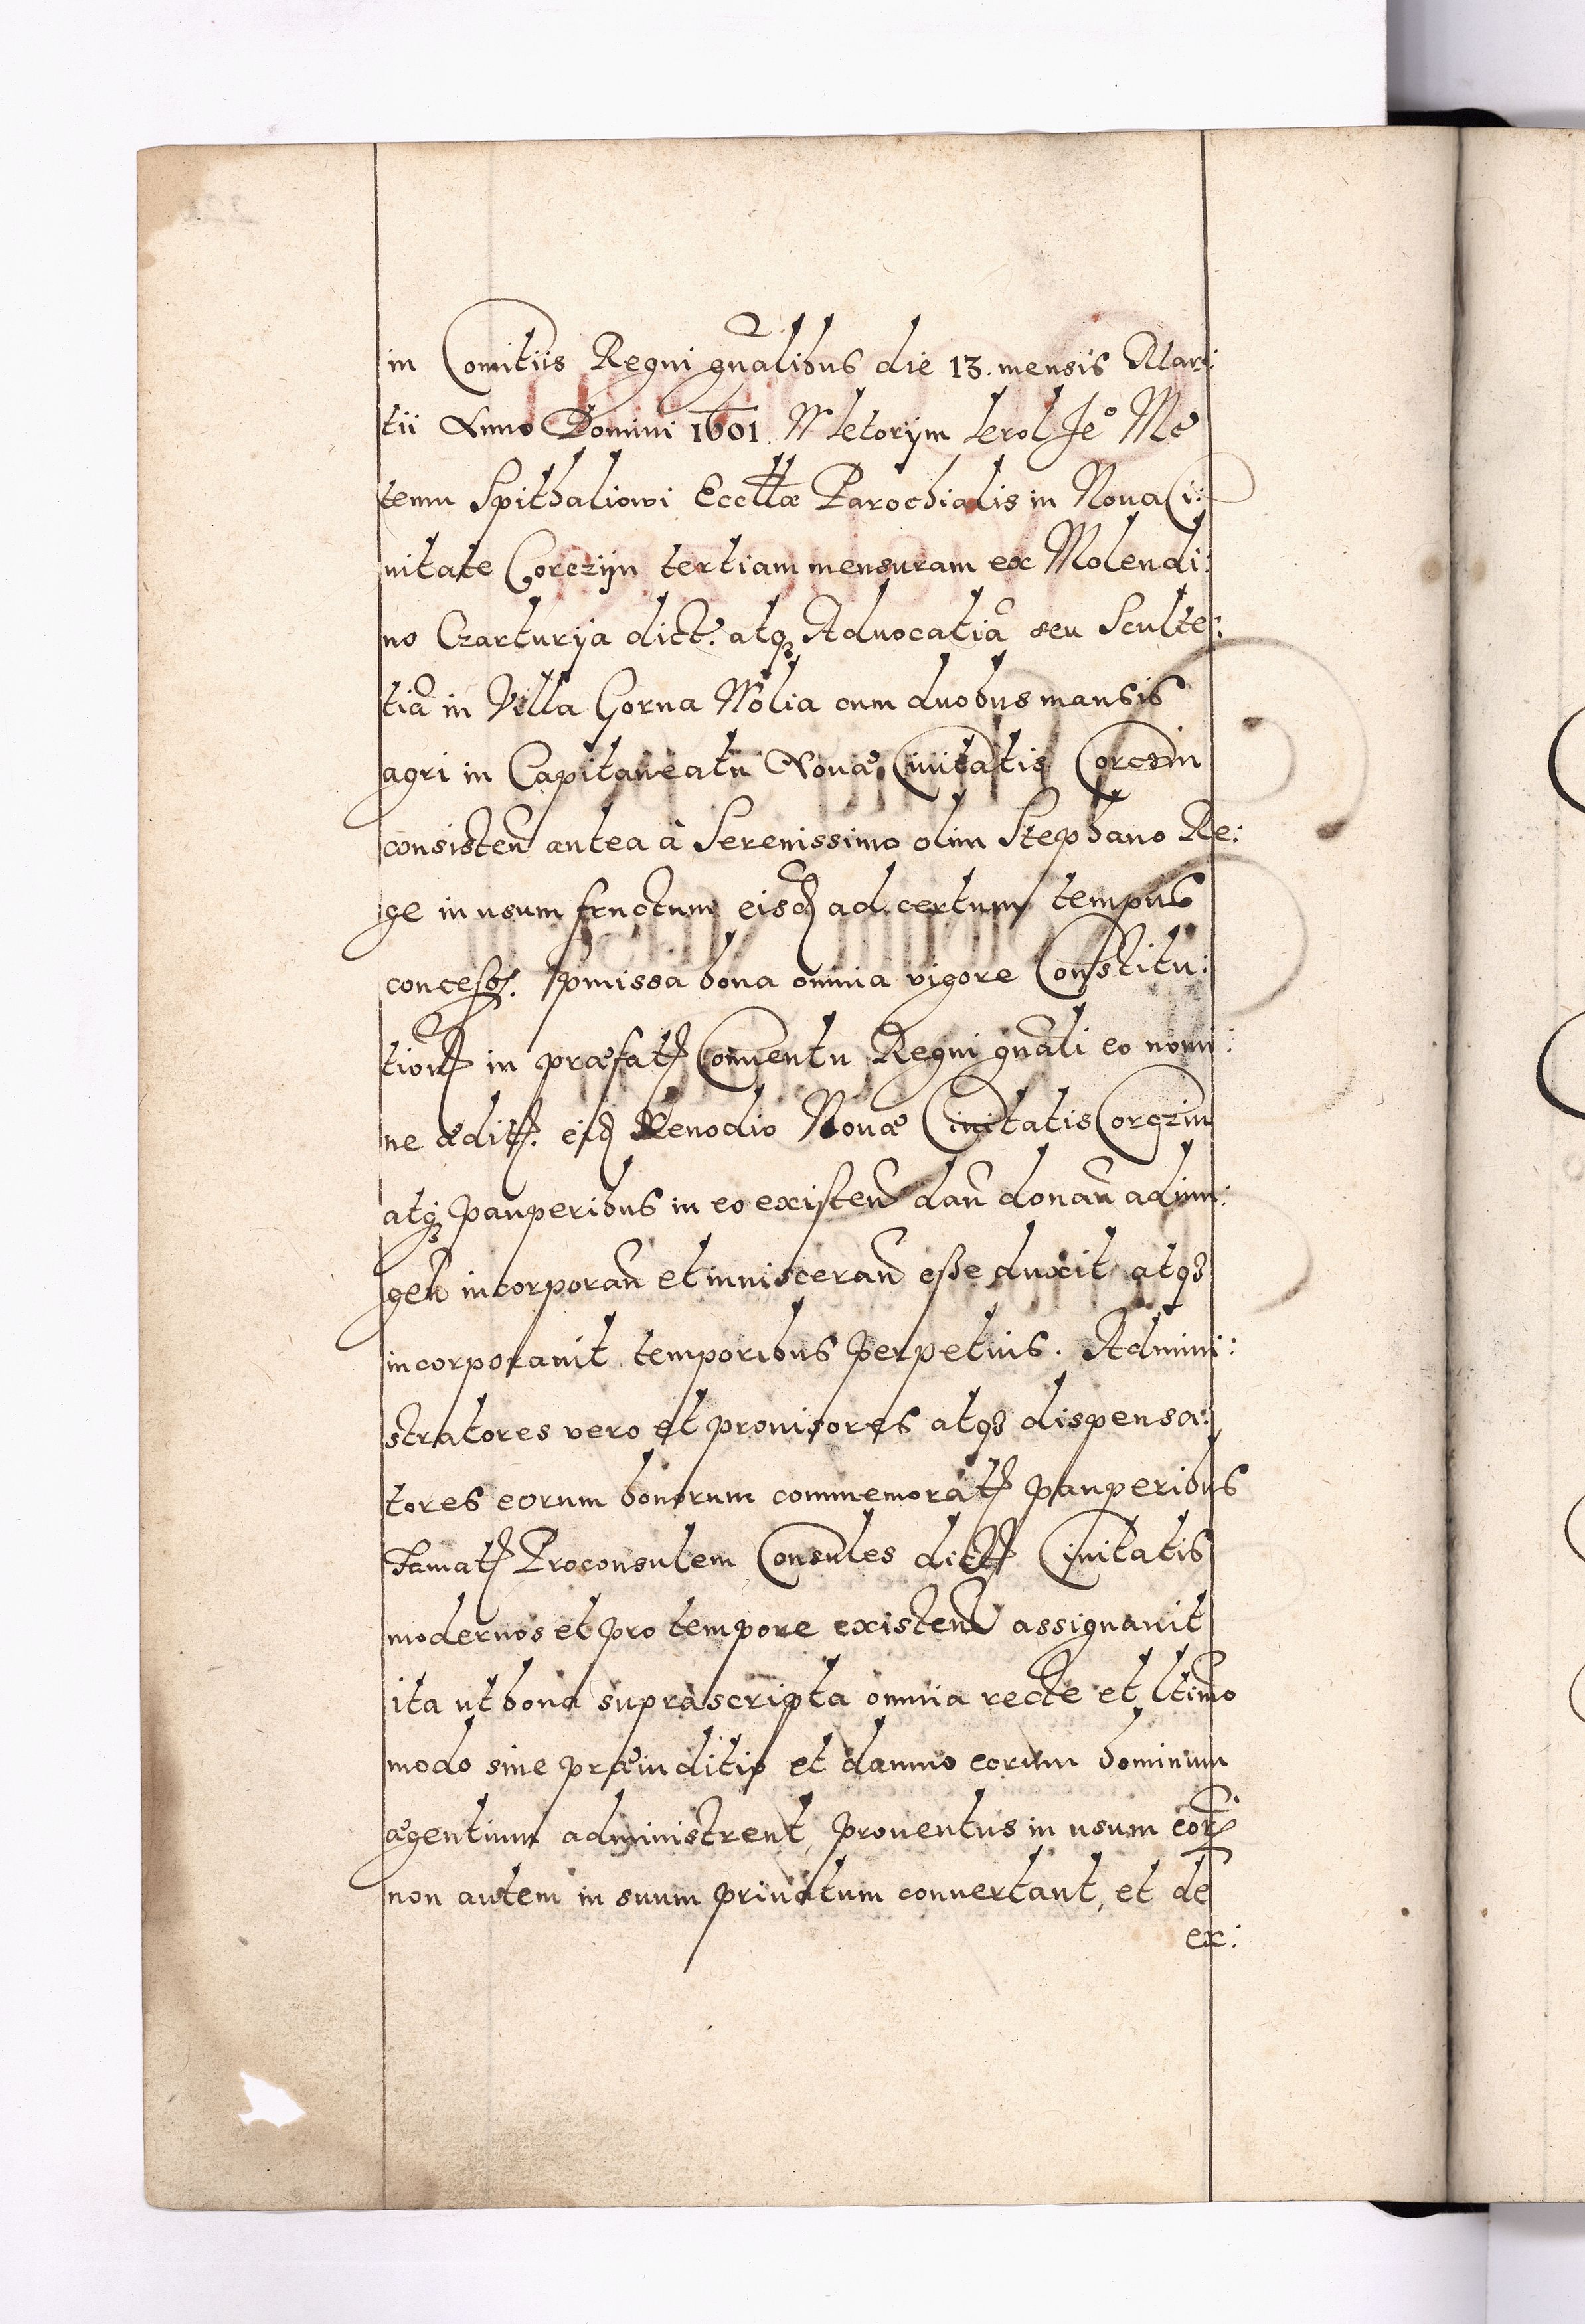 in Comitiis Regni gnalibus die 13. mensis Mar:
tii Anno Domini 1601. W ktorym krol Je° Mc
temu Spithaliowi Ecclæ Parochialis in Noua Ci:
uitate Corczyn tertiam mensuram ex Molendi:
no Czarturyja dict. atq Aduocatia seu Sculte:
tia in Villa Gorna Wolia cum duobus mansis
agri in Capitaneatu Nouæ Ciuitatis Corczin
consisten antea à Serenissimo olim Stephano Re:
ge in usum fructum eisd ad certum tempus
concess. pmissa bona omnia vigore Constitu:
tion in præfat Conuentu Regni gnali eo nomi:
ne ædit. eid Xenodio Nouæ Ciuitatis Corczin
atq pauperibus in eo existen dan donan adiun:
gen incorporan et inuisceran esse duxit atq
incorporauit temporibus perpetuis. Admini:
stratores vero et prouisores atq dispensa:
tores eorum bonorum commemorat pauperibus
Famat Proconsulem Consules dict Ciuitatis
modernos et pro tempore existen assignauit
ita ut bona suprascripta omnia recte et ltimo
modo sine præiuditio et damno eorum hominum
ægentium administrent, prouentus in usum eor
non autem in suum priuatum conuertant, et de
ex: